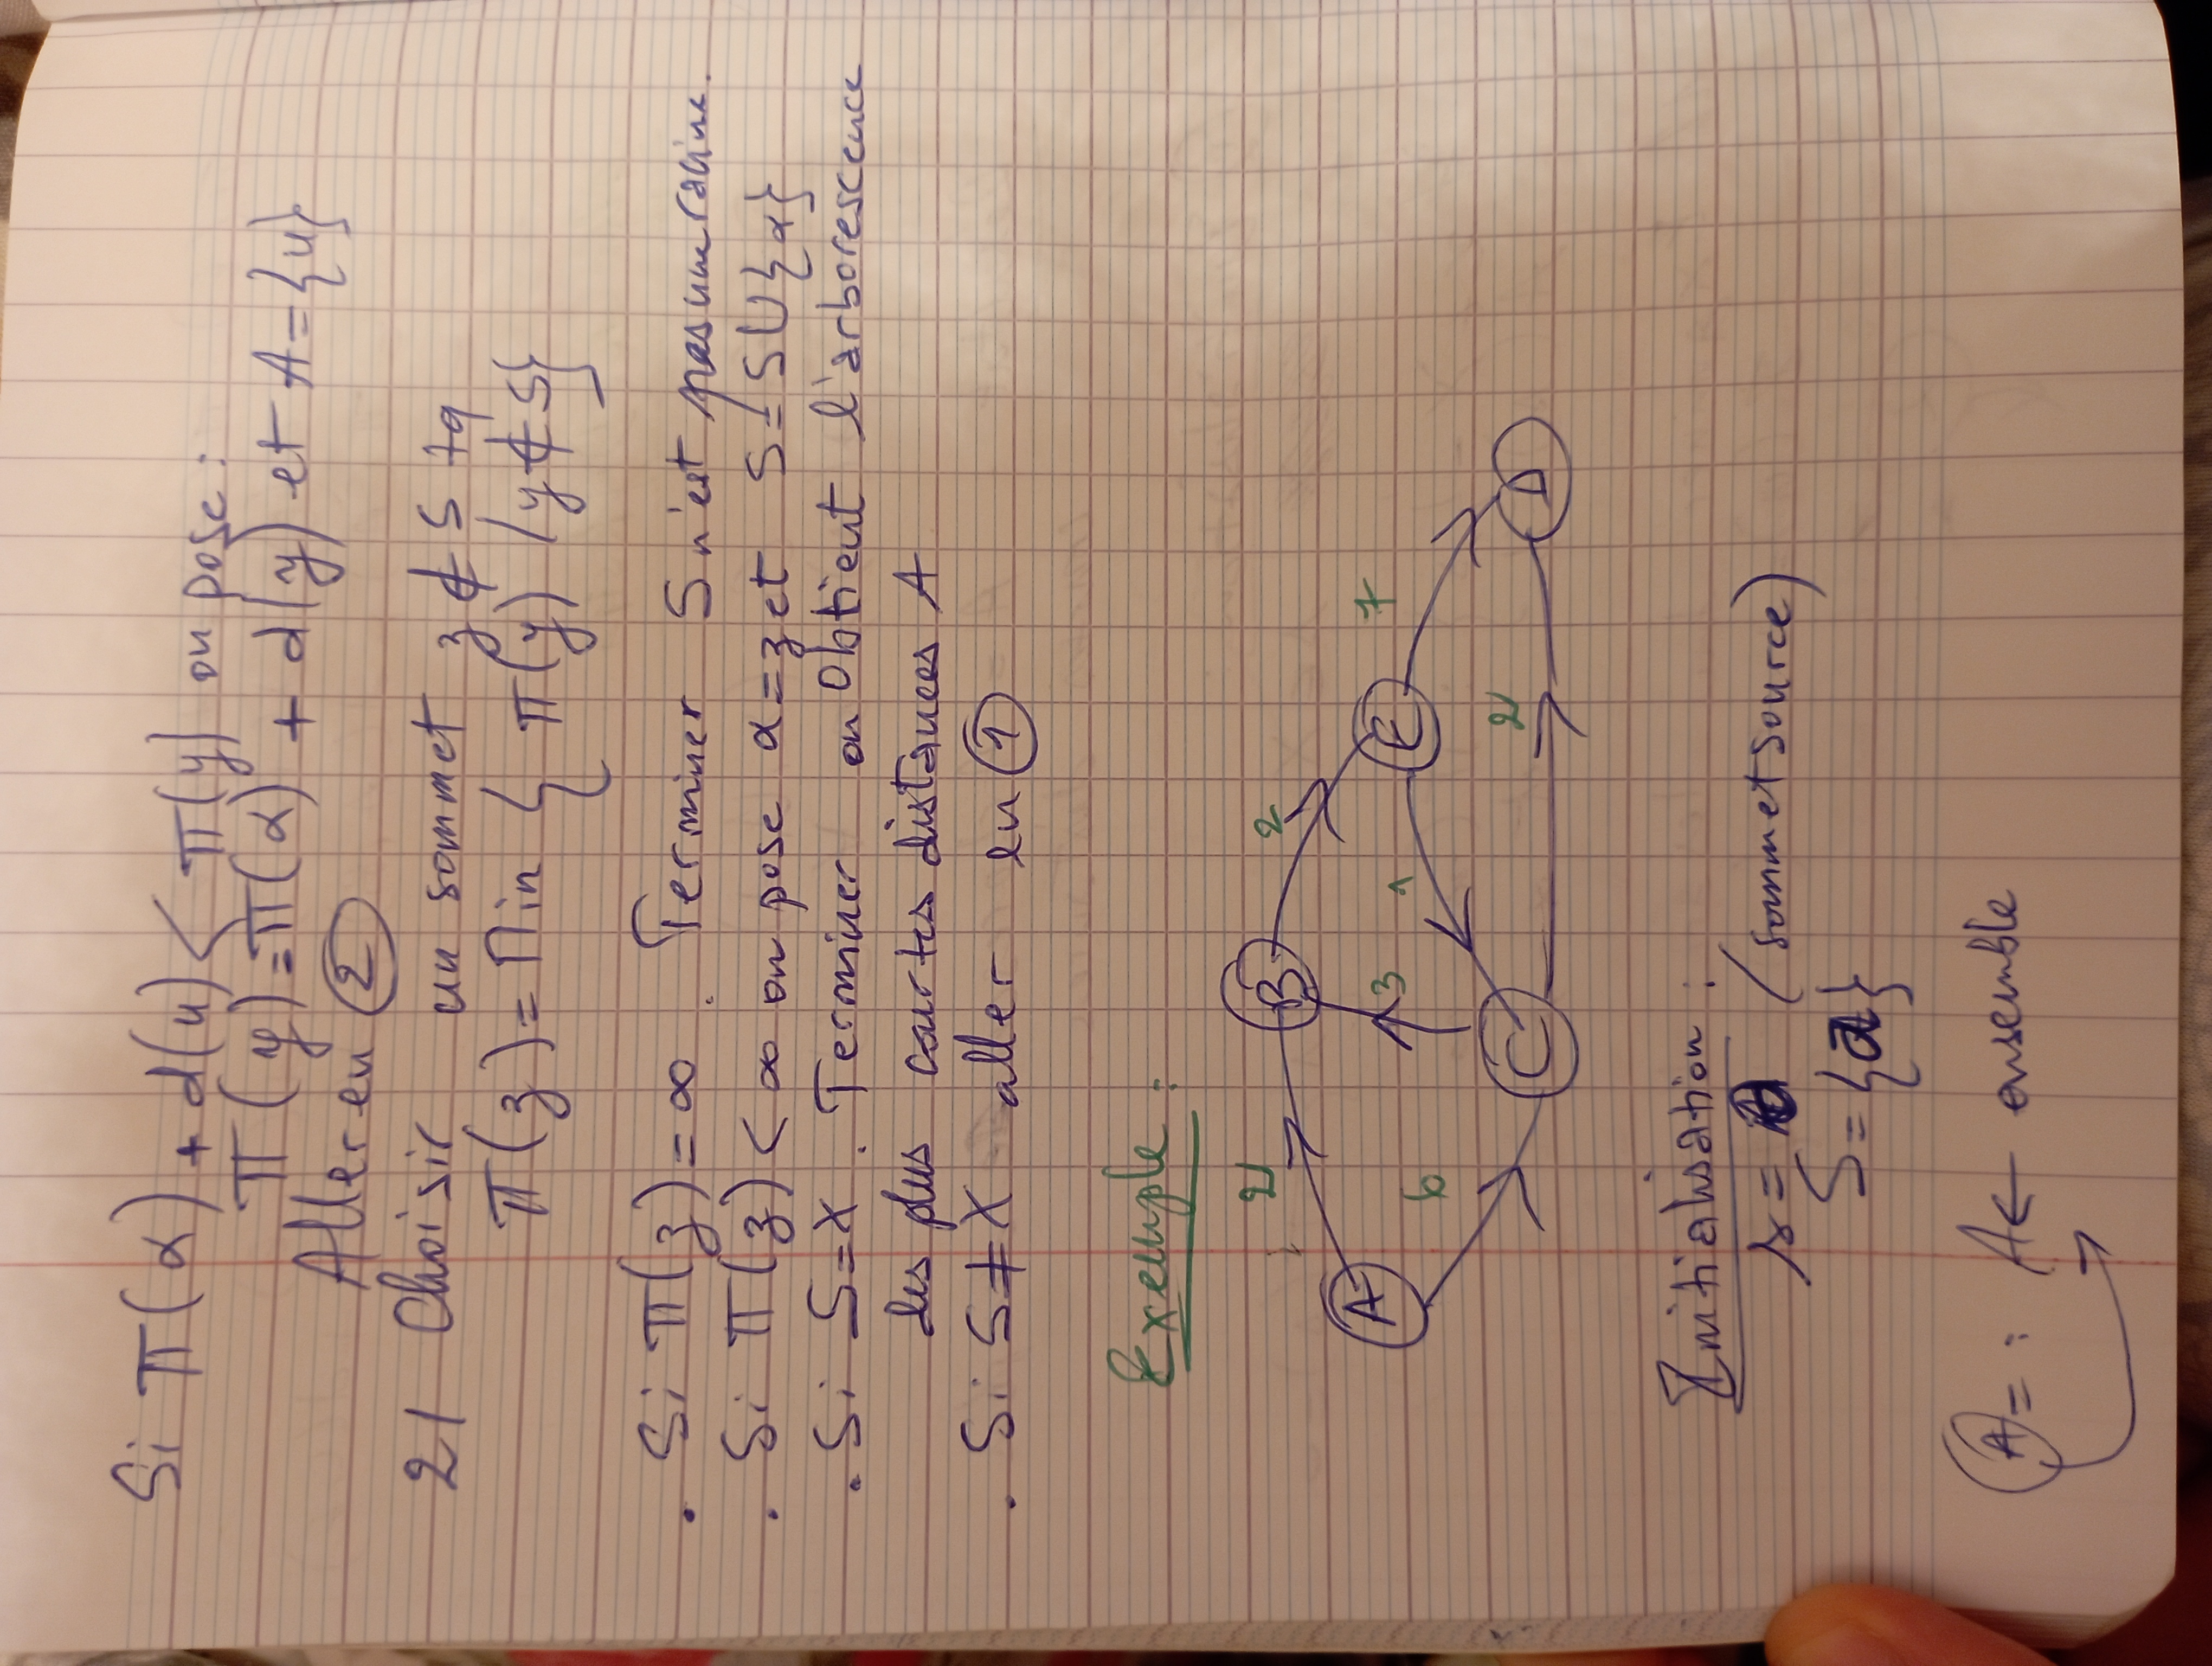 Si π(α) + d(u) < π(y) on pose:
π(y) = π(α) + d(y) et A = {u}
Aller en ②
2/ Choisir un sommet z ∉ S tq
π(z) = Min { π(y) / y ∉ S }
• Si π(z) = ∞. Terminer S n'est pas une racine.
• Si π(z) < ∞ on pose α = z et S = S ∪ {α}
• Si S = X. Terminer on Obtient l'arborescence
des plus courtes distances A
• Si S ≠ X aller en ①
Exemple :
A 2 B 2 E 7 D
6 3 1
C 2
Initialisation :
(sommet source)
S = {a}
A = : A ← ensemble